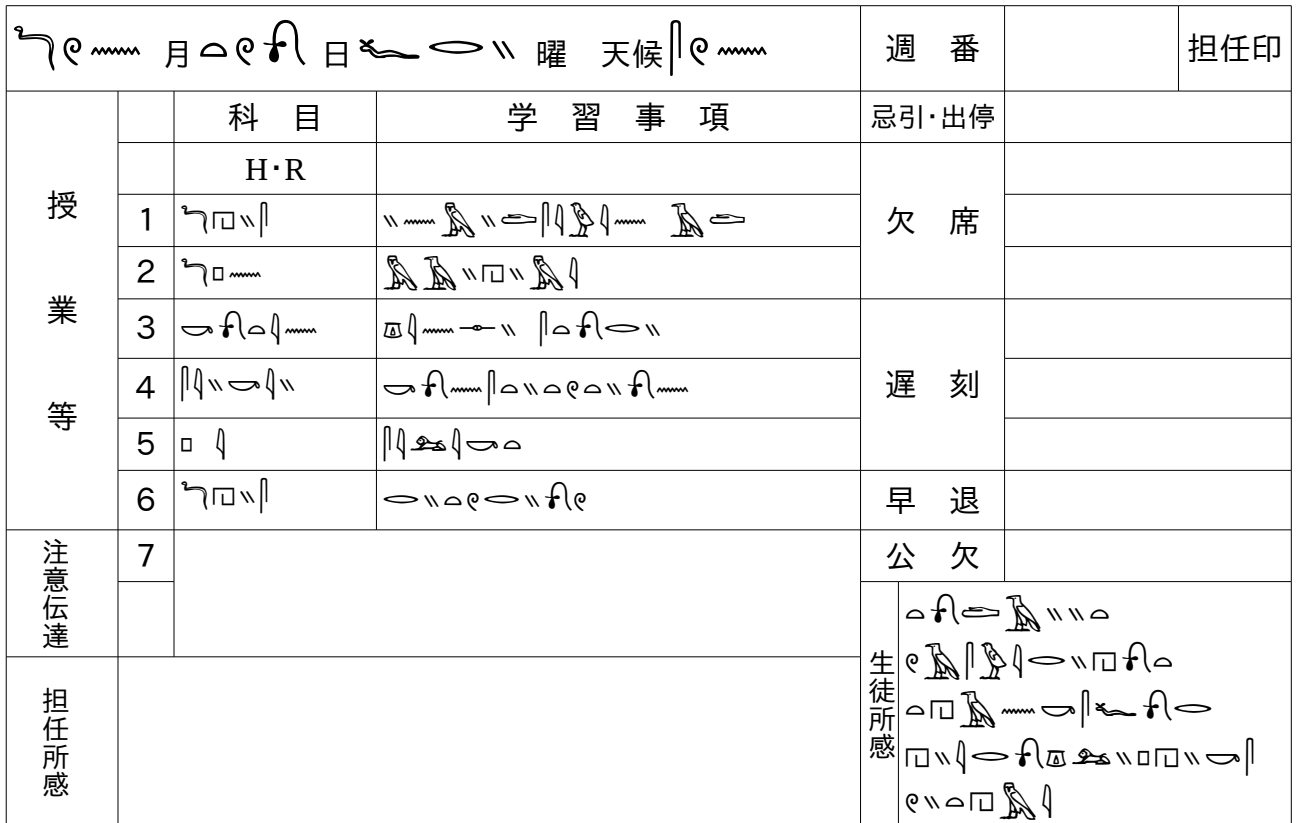 𓆓𓏲𓈖 月 𓏏𓏲𓍯 日 𓆑𓂋𓏭 曜 天候 𓋴𓏲𓈖 週番 担任印
授業等 科目 学習事項 忌引・出停
H・R
1 𓆓𓉔𓏭𓋴 𓏭𓈖𓅓𓏭𓂧𓋴𓇋𓅱𓇋𓈖 𓄿𓂧 欠席
2 𓆓𓊪𓈖 𓅓𓄿𓏭𓉔𓏭𓅓𓇋
3 𓎡𓍯𓏏𓇋𓈖 𓎼𓇋𓈖𓊃𓏭 𓋴𓏏𓍯𓂋𓏭
4 𓋴𓇋𓏭𓎡𓇋𓏭 𓎡𓍯𓈖𓋴𓏏𓏭𓏏𓏲𓏏𓏭𓍯𓈖 遅刻
5 𓊪 𓇋 𓋴𓇋𓃭𓇋𓎡𓏏
6 𓆓𓉔𓏭𓋴 𓂋𓏭𓏏𓏲𓂋𓏭𓍯𓏲 早退
注意伝達 7 公欠
担任所感
生徒所感
𓏏𓍯𓂧𓄿𓏭𓏭𓏏
𓏲𓄿𓋴𓅱𓇋𓂋𓏭𓉔𓍯𓏏
𓏏𓉔𓄿𓈖𓎡𓋴𓆑𓍯𓂋
𓉔𓏭𓇋𓂋𓍯𓎼𓃭𓏭𓊪𓉔𓏭𓎡𓋴
𓏲𓏭𓏏𓉔𓅓𓇋